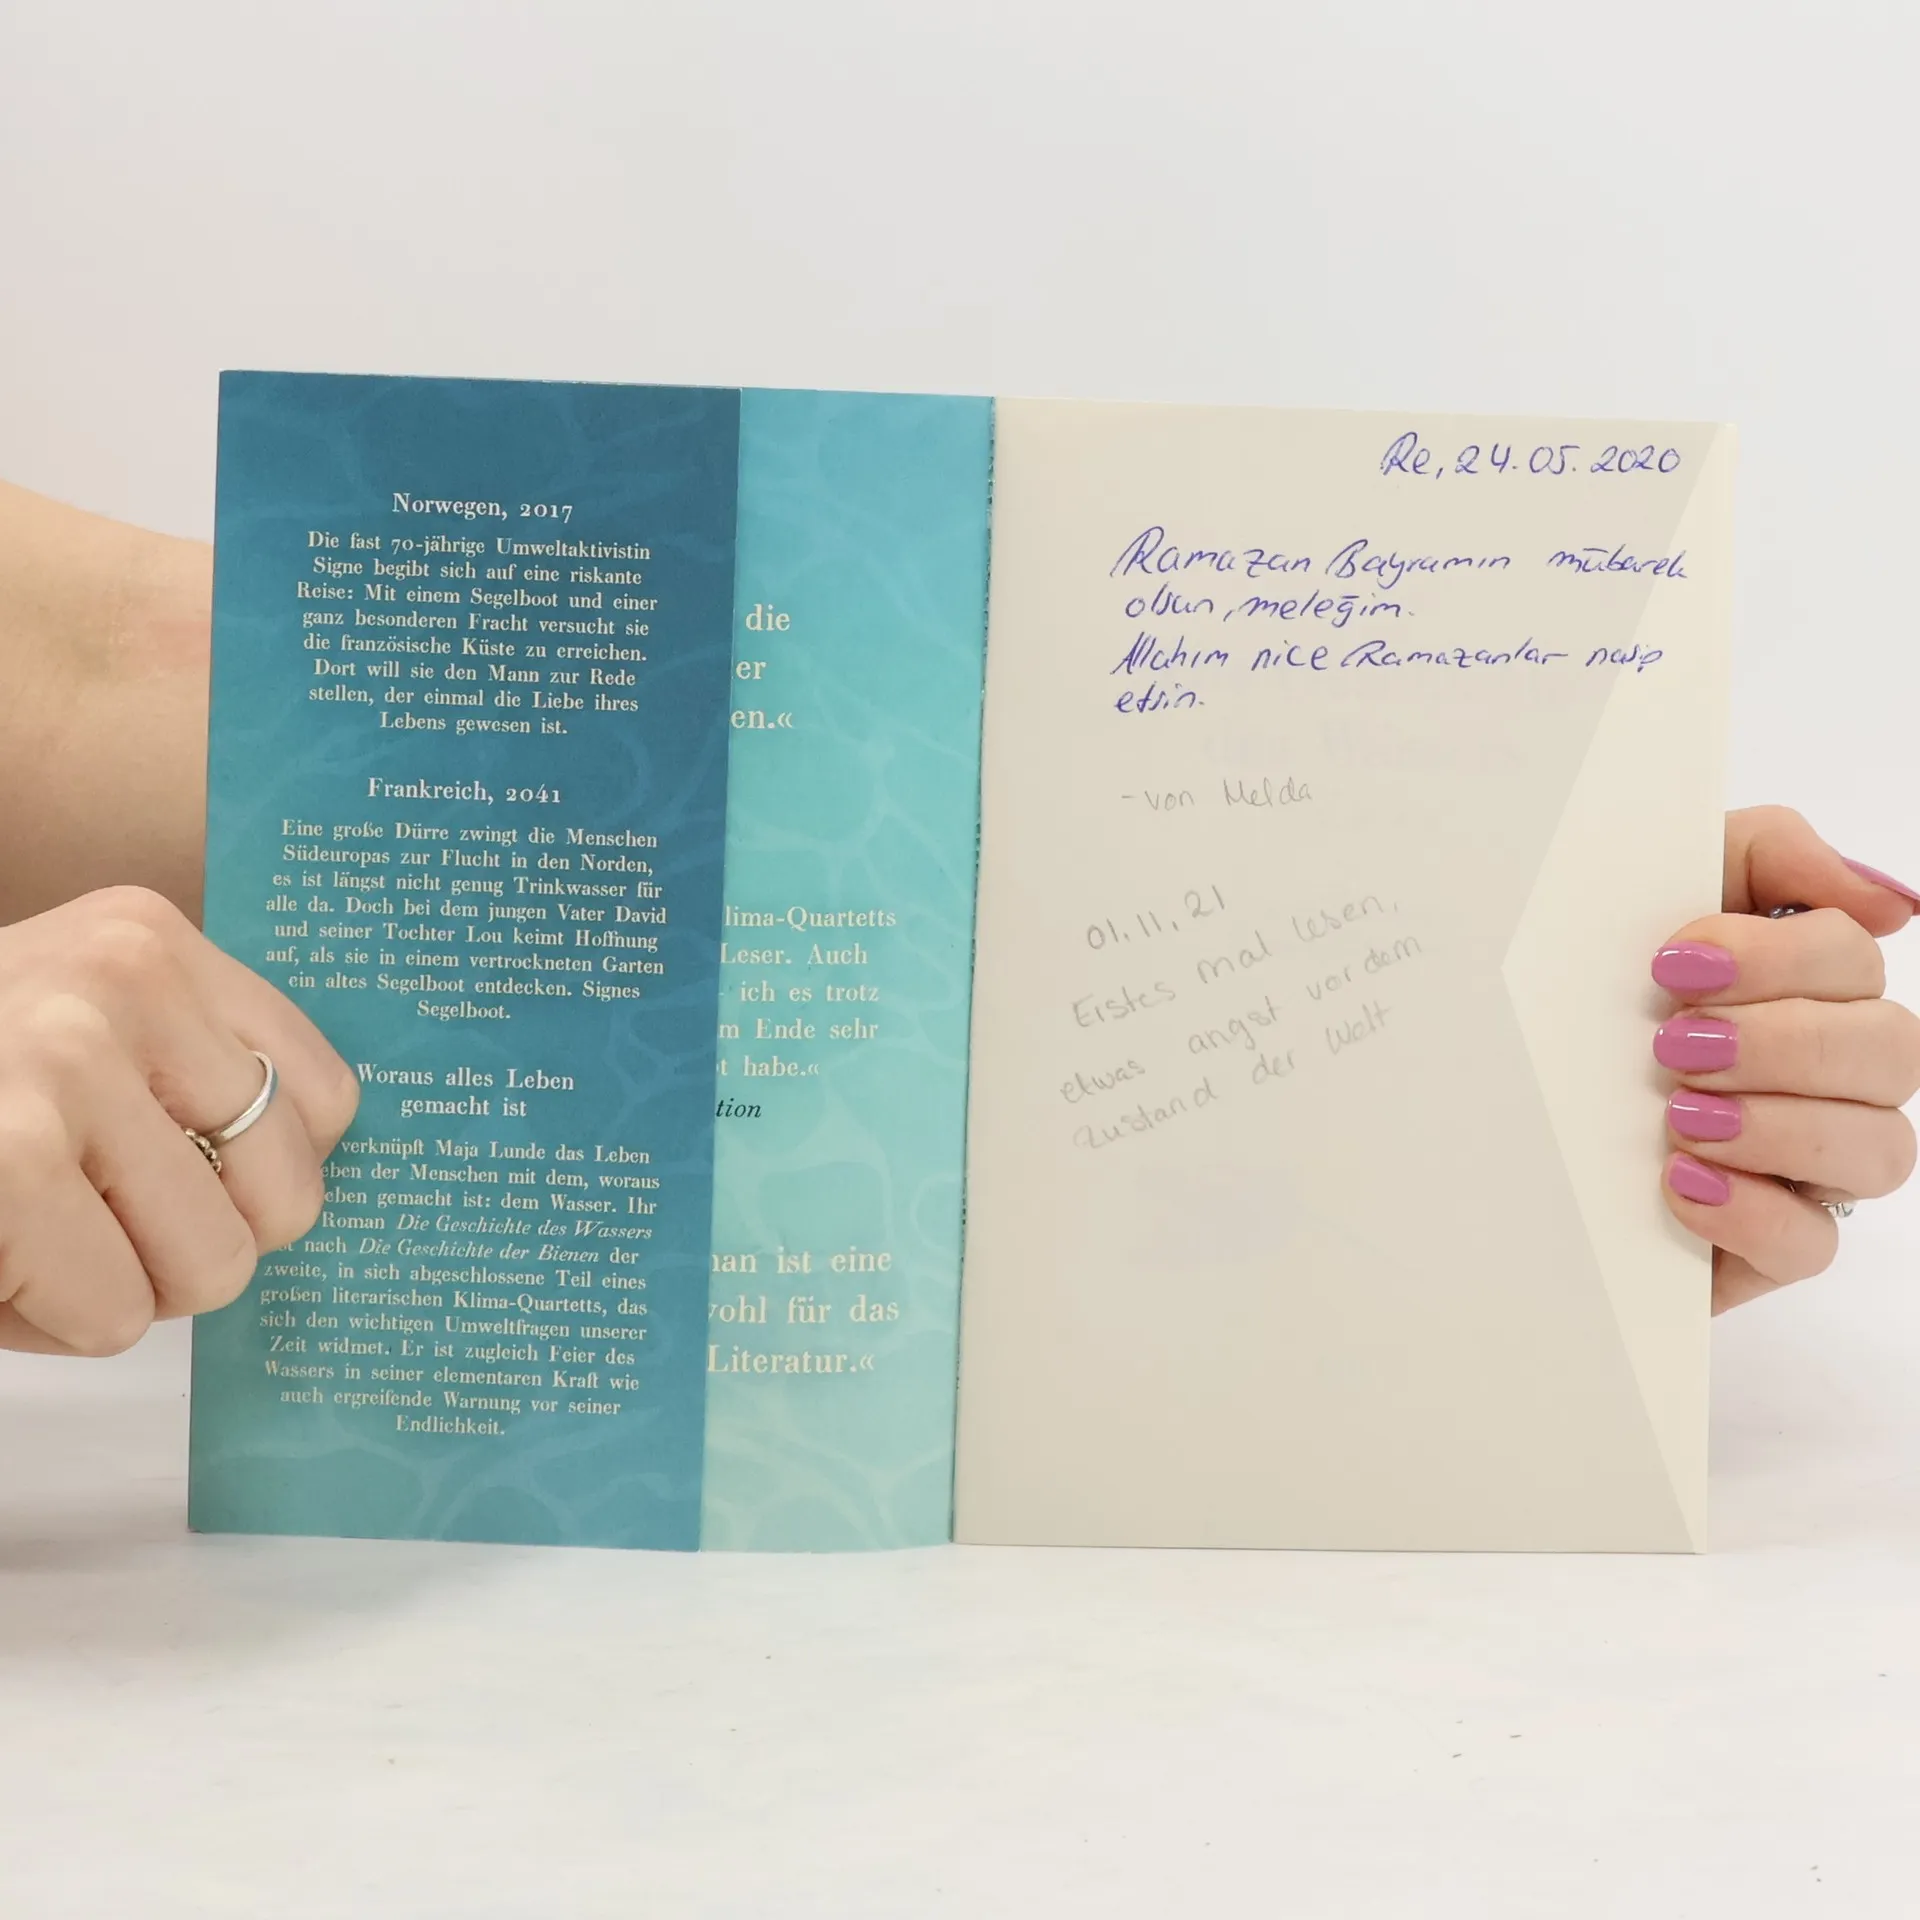 Norwegen, 2017
Die fast 70-jährige Umweltaktivistin
Signe begibt sich auf eine riskante
Reise: Mit einem Segelboot und einer
ganz besonderen Fracht versucht sie
die französische Küste zu erreichen.
Dort will sie den Mann zur Rede
stellen, der einmal die Liebe ihres
Lebens gewesen ist.
Frankreich, 2041
Eine große Dürre zwingt die Menschen
Südeuropas zur Flucht in den Norden,
es ist längst nicht genug Trinkwasser für
alle da. Doch bei dem jungen Vater David
und seiner Tochter Lou keimt Hoffnung
auf, als sie in einem vertrockneten Garten
ein altes Segelboot entdecken. Signes
Segelboot.
Woraus alles Leben
gemacht ist
verknüpft Maja Lunde das Leben
eben der Menschen mit dem, woraus
eben gemacht ist: dem Wasser. Ihr
Roman Die Geschichte des Wassers
nach Die Geschichte der Bienen der
zweite, in sich abgeschlossene Teil eines
großen literarischen Klima-Quartetts, das
sich den wichtigen Umweltfragen unserer
Zeit widmet. Er ist zugleich Feier des
Wassers in seiner elementaren Kraft wie
auch ergreifende Warnung vor seiner
Endlichkeit.
die
er
en.«
lima-Quartetts
Leser. Auch
- ich es trotz
m Ende sehr
t habe.«
tion
an ist eine
ohl für das
Literatur.«
Re, 24.05.2020
Ramazan Bayramın mübarek
olsun, meleğim.
Allahım nice Ramazanlar nasip
etsin.
- von Melda
01.11.21
Erstes mal lesen,
etwas angst vor dem
zustand der Welt